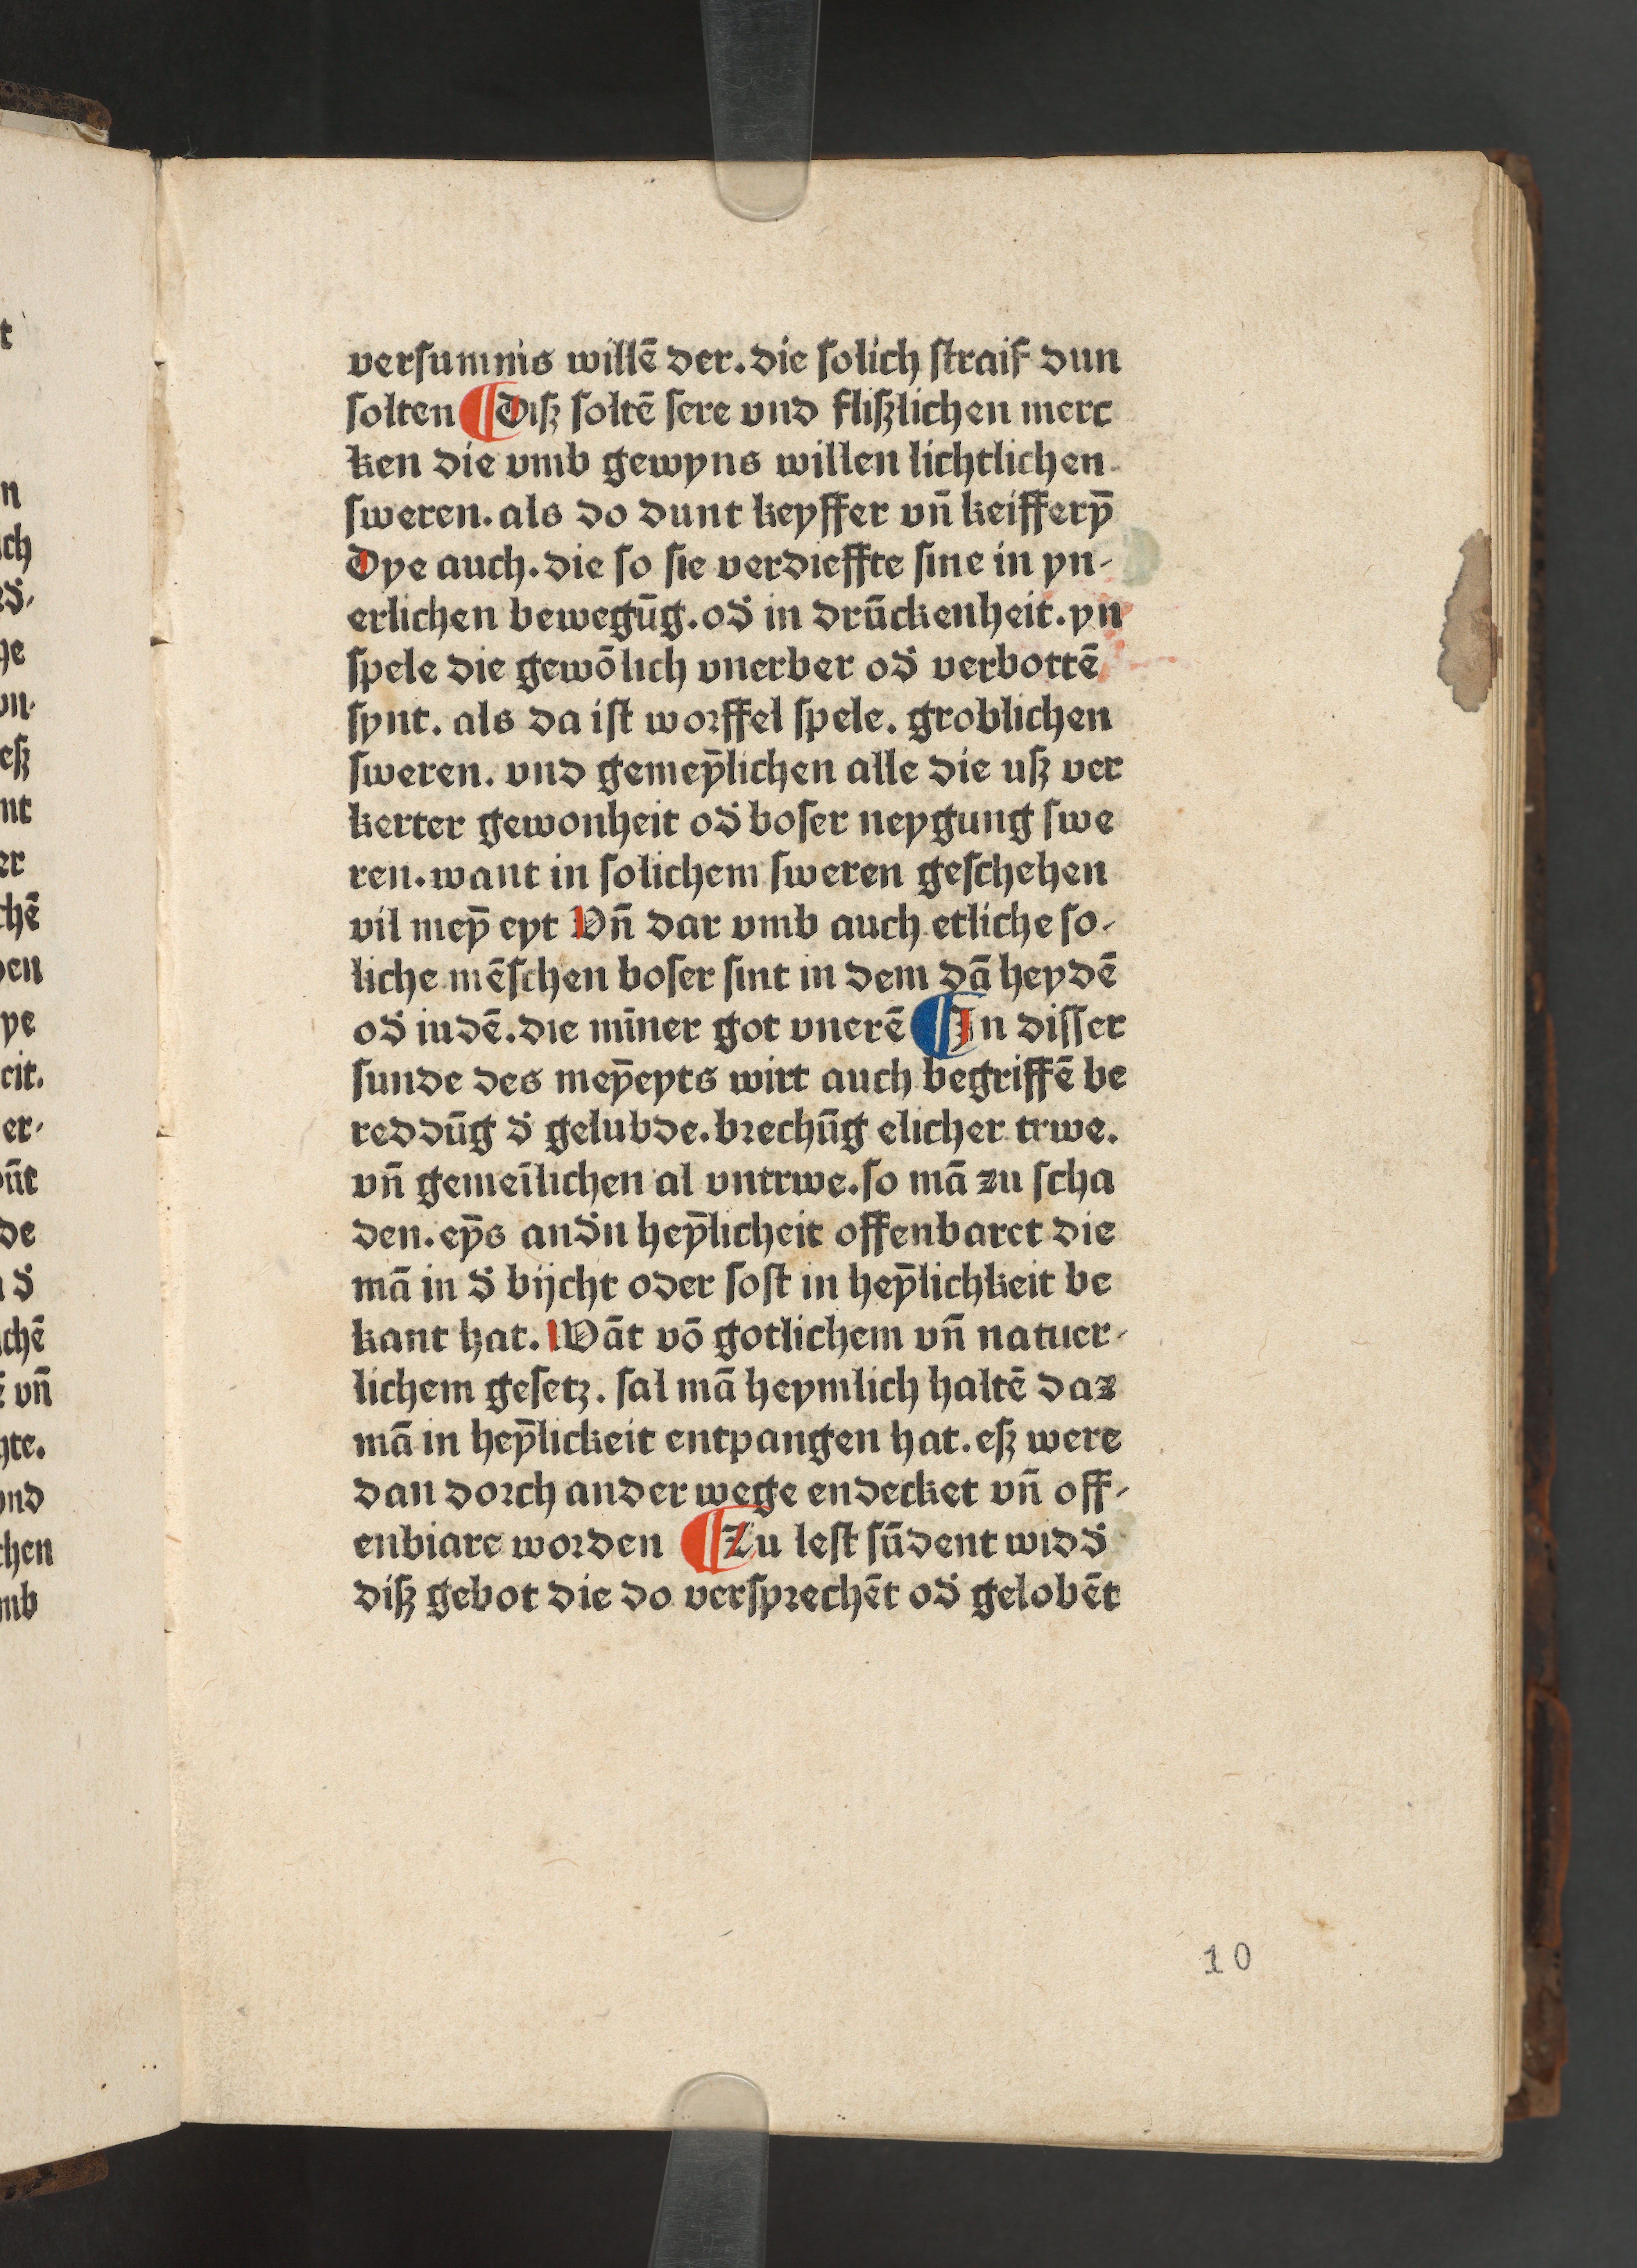 versumnis willē der. die solich straif dun
solten ¶ Diſz soltē sere vnd fliſzlichen merc
ken die vmb gewyns willen lichtlichen
ſweren. als do dunt keyffer vn̄ keifferȳ
Dye auch. die so sie verdieffte sine in yn-
erlichen bewegūg. od̄ in drūckenheit. yn
ſpele die gewōlich vnerber od̄ verbottē
ſynt. als da iſt worffel ſpele. groblichen
ſweren. vnd gemeȳlichen alle die uſz ver
kerter gewonheit od̄ boſer neygung ſwe
ren. want in ſolichem ſweren geſchehen
vil meȳ eyt Vn̄ dar vmb auch etliche ſo-
liche mēſchen boſer ſint in dem dā heydē
od̄ iudē. die mīner got vnerē ¶ In diſſer
ſunde des meȳeyts wirt auch begriffē be
reddūg d̄ gelubde. brechūg elicher trwe.
vn̄ gemeīlichen al vntrwe. ſo mā zu ſcha
den. eȳs and̄n heȳlicheit offenbaret die
mā in d̄ bijcht oder ſoſt in heȳlichkeit be
kant hat. Wāt vō gotlichem vn̄ natuer-
lichem geſetz. ſal mā heymlich haltē daz
mā in heȳlickeit entpangen hat. eſz were
dan dorch ander wege endecket vn̄ off-
enbiare worden ¶ Zu leſt ſūdent wid̄
diſz gebot die do verſprechēt od̄ gelobēt
10